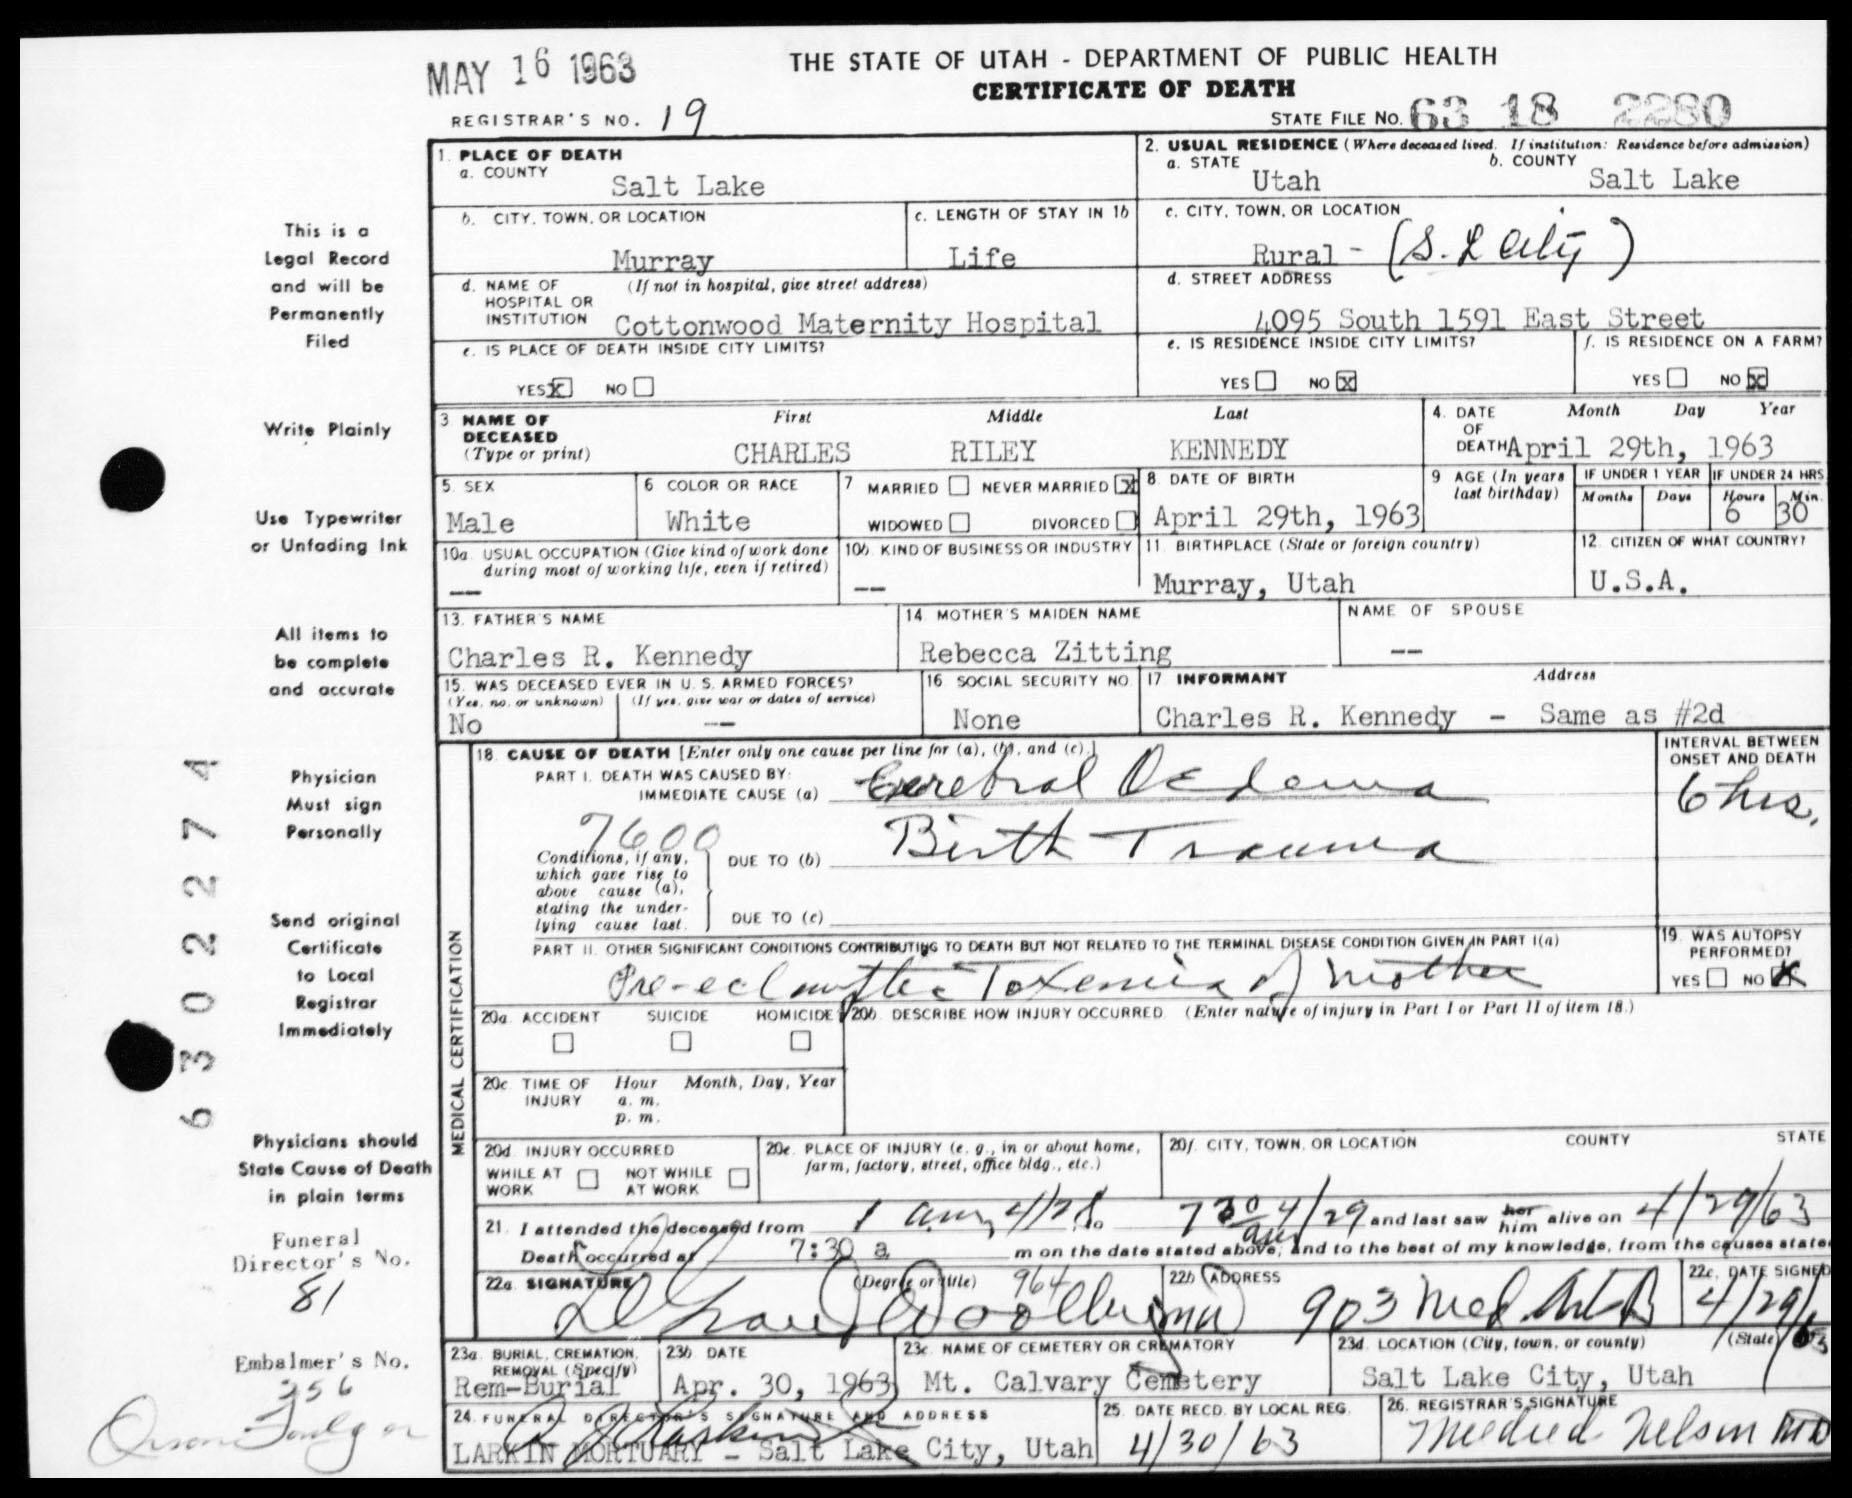 MAY 16 1963
THE STATE OF UTAH - DEPARTMENT OF PUBLIC HEALTH
CERTIFICATE OF DEATH
REGISTRAR'S NO. 19
STATE FILE NO. 63 18 2280
This is a
Legal Record
and will be
Permanently
Filed
Write Plainly
Use Typewriter
or Unfading Ink
All items to
be complete
and accurate
Physician
Must sign
Personally
Send original
Certificate
to Local
Registrar
Immediately
Physicians should
State Cause of Death
in plain terms
Funeral
Director's No.
81
Embalmer's No.
256
6302274
1. PLACE OF DEATH
a. COUNTY
Salt Lake
2. USUAL RESIDENCE (Where deceased lived. If institution: Residence before admission)
a. STATE Utah
b. COUNTY Salt Lake
b. CITY, TOWN, OR LOCATION
Murray
c. LENGTH OF STAY IN 1b
Life
c. CITY, TOWN, OR LOCATION
Rural - (S. L City)
d. NAME OF HOSPITAL OR INSTITUTION (If not in hospital, give street address)
Cottonwood Maternity Hospital
d. STREET ADDRESS
4095 South 1591 East Street
e. IS PLACE OF DEATH INSIDE CITY LIMITS?
YES X NO
e. IS RESIDENCE INSIDE CITY LIMITS?
YES NO X
f. IS RESIDENCE ON A FARM?
YES NO X
3 NAME OF DECEASED (Type or print)
First Middle Last
CHARLES RILEY KENNEDY
4. DATE OF DEATH Month Day Year
April 29th, 1963
5. SEX
Male
6 COLOR OR RACE
White
7 MARRIED NEVER MARRIED X
WIDOWED DIVORCED
8. DATE OF BIRTH
April 29th, 1963
9 AGE (In years last birthday)
IF UNDER 1 YEAR
Months Days
IF UNDER 24 HRS
Hours Min.
6 30
10a. USUAL OCCUPATION (Give kind of work done during most of working life, even if retired)
--
10b. KIND OF BUSINESS OR INDUSTRY
--
11. BIRTHPLACE (State or foreign country)
Murray, Utah
12. CITIZEN OF WHAT COUNTRY?
U.S.A.
13. FATHER'S NAME
Charles R. Kennedy
14. MOTHER'S MAIDEN NAME
Rebecca Zitting
NAME OF SPOUSE
--
15. WAS DECEASED EVER IN U. S. ARMED FORCES?
(Yes, no, or unknown) (If yes, give war or dates of service)
No --
16. SOCIAL SECURITY NO.
None
17 INFORMANT Address
Charles R. Kennedy - Same as #2d
MEDICAL CERTIFICATION
18. CAUSE OF DEATH [Enter only one cause per line for (a), (b), and (c).]
INTERVAL BETWEEN ONSET AND DEATH
PART I. DEATH WAS CAUSED BY:
IMMEDIATE CAUSE (a) Cerebral Oedema
6 hrs.
7600
Conditions, if any, which gave rise to above cause (a), stating the underlying cause last.
DUE TO (b) Birth Trauma
DUE TO (c)
PART II. OTHER SIGNIFICANT CONDITIONS CONTRIBUTING TO DEATH BUT NOT RELATED TO THE TERMINAL DISEASE CONDITION GIVEN IN PART I(a)
Pre-eclamptic Toxemia of mother
19. WAS AUTOPSY PERFORMED?
YES NO X
20a. ACCIDENT SUICIDE HOMICIDE
20b. DESCRIBE HOW INJURY OCCURRED. (Enter nature of injury in Part I or Part II of item 18.)
20c. TIME OF INJURY Hour Month, Day, Year
a. m.
p. m.
20d. INJURY OCCURRED
WHILE AT WORK NOT WHILE AT WORK
20e. PLACE OF INJURY (e. g., in or about home, farm, factory, street, office bldg., etc.)
20f. CITY, TOWN, OR LOCATION COUNTY STATE
21. I attended the deceased from 1 am, 4/28 to 730 am 4/29 and last saw her him alive on 4/29/63
Death occurred at 7:30 a m on the date stated above; and to the best of my knowledge, from the causes state
22a. SIGNATURE (Degree or title)
964
22b ADDRESS
903 Med. Arts B
22c. DATE SIGNED
4/29/63
23a. BURIAL, CREMATION, REMOVAL (Specify)
Rem-Burial
23b. DATE
Apr. 30, 1963
23c. NAME OF CEMETERY OR CREMATORY
Mt. Calvary Cemetery
23d. LOCATION (City, town, or county) (State)
Salt Lake City, Utah
24. FUNERAL DIRECTOR'S SIGNATURE AND ADDRESS
LARKIN MORTUARY - Salt Lake City, Utah
25. DATE RECD. BY LOCAL REG.
4/30/63
26. REGISTRAR'S SIGNATURE
Mildred Nelson